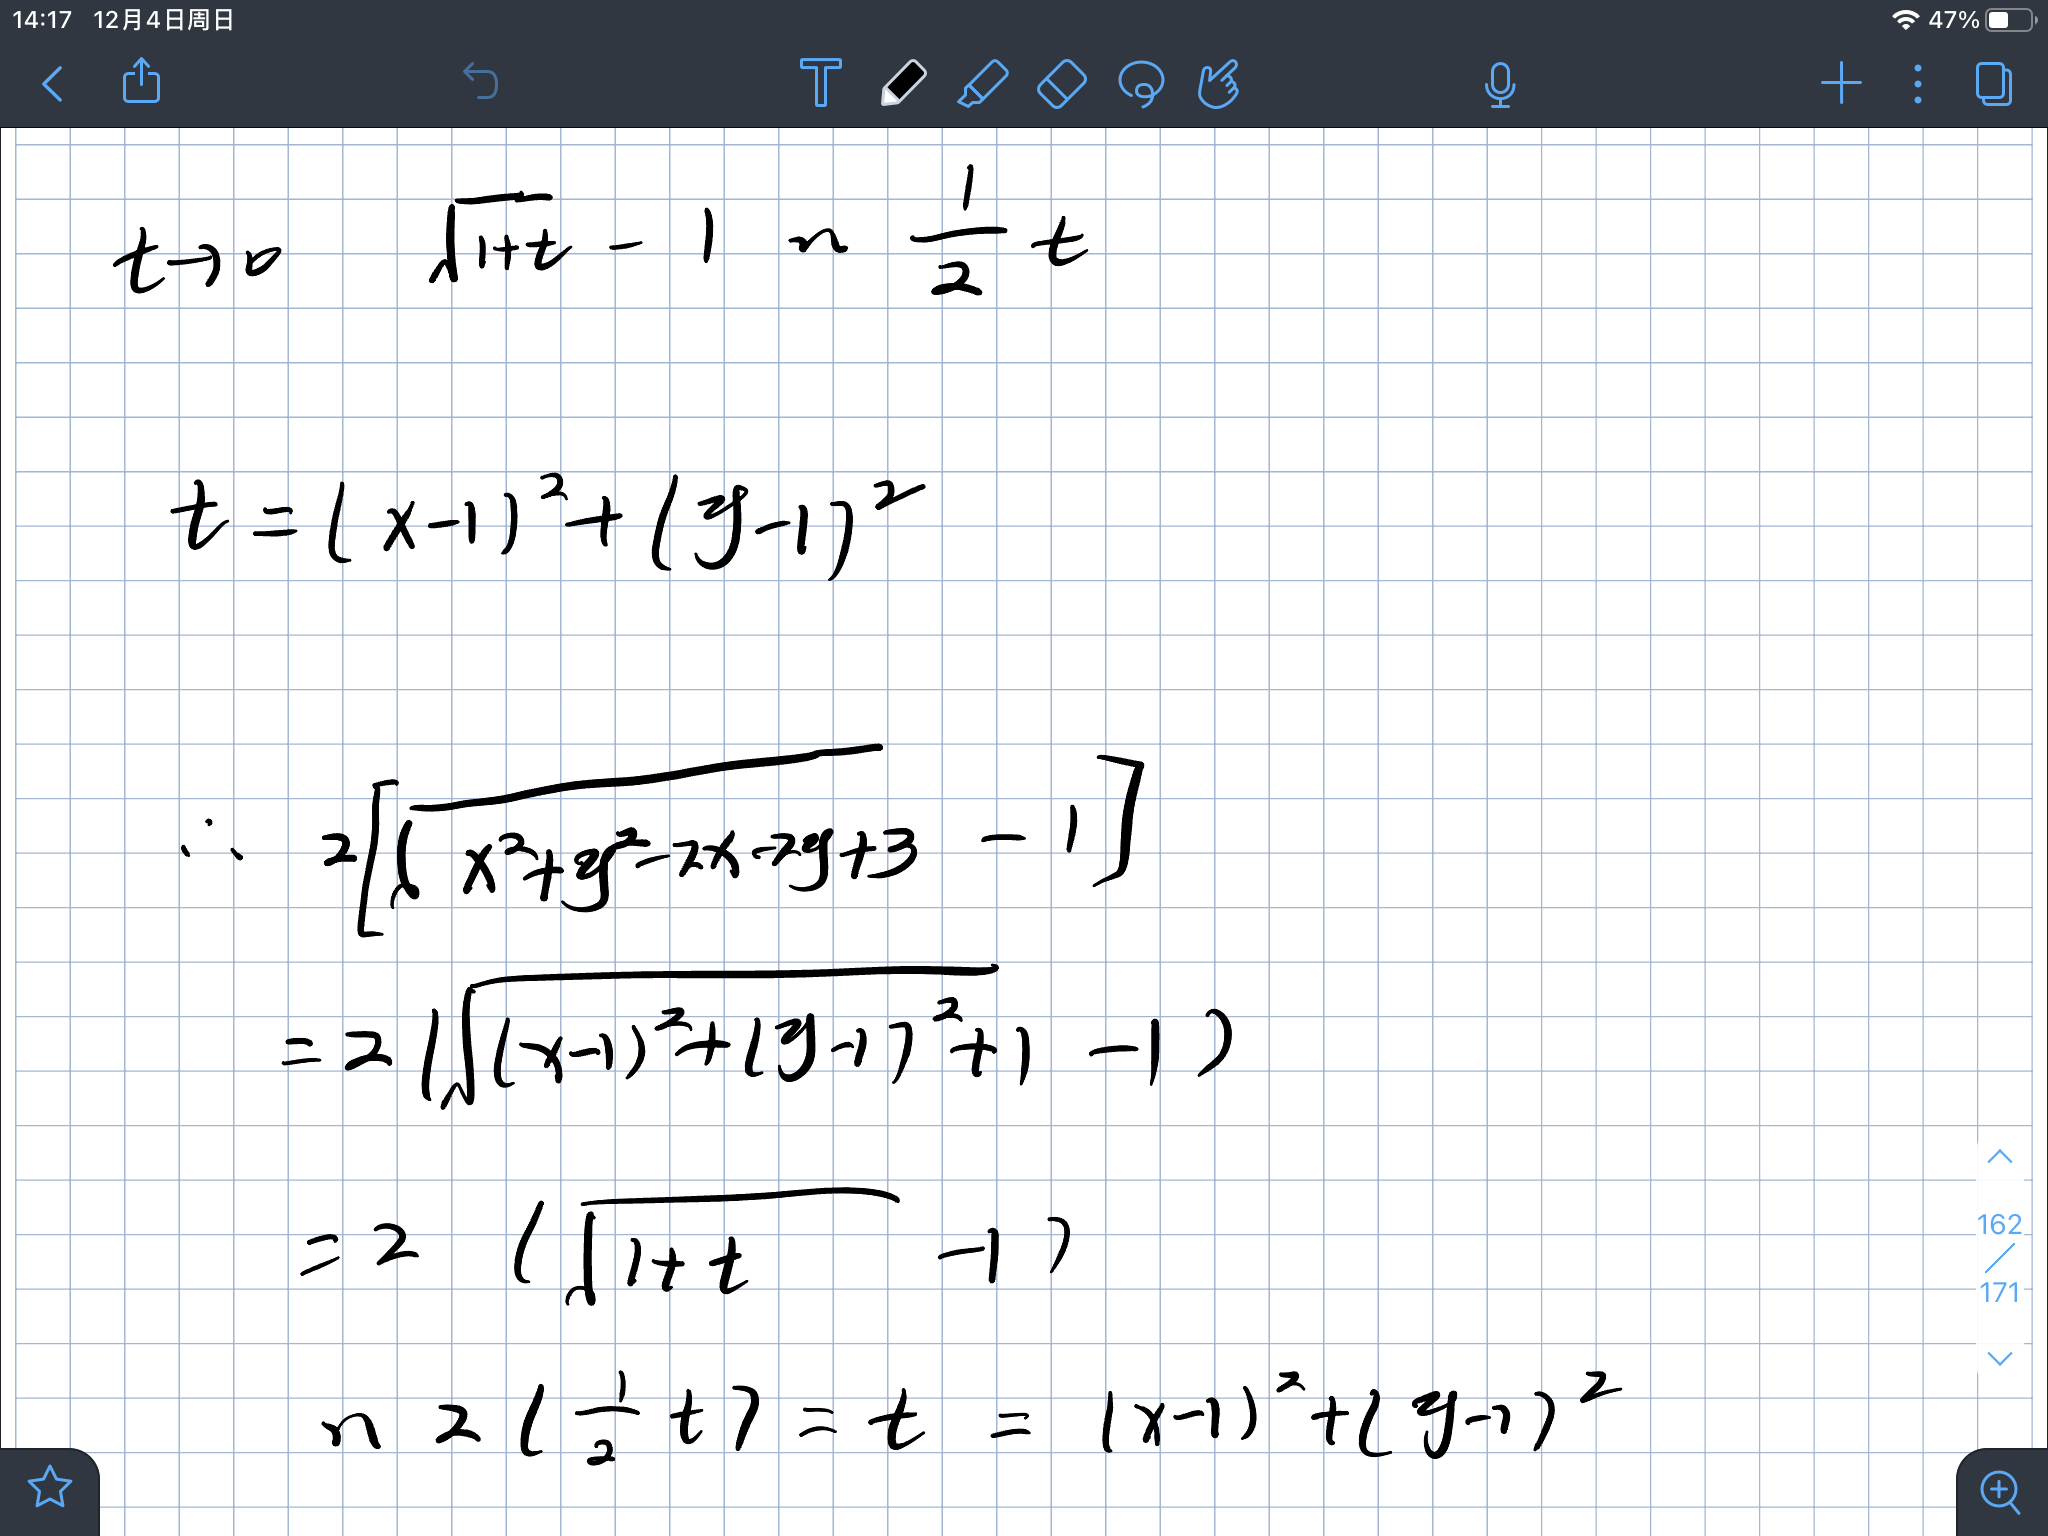 14:17 12月4日周日 47%
T
t→0 √(1+t) - 1 ~ 1/2 t
t = (x-1)² + (y-1)²
∴ 2[√(x²+y²-2x-2y+3) - 1]
= 2(√((x-1)²+(y-1)²+1) - 1)
= 2 (√(1+t) - 1)
~ 2 (1/2 t) = t = (x-1)² + (y-1)²
162
/
171